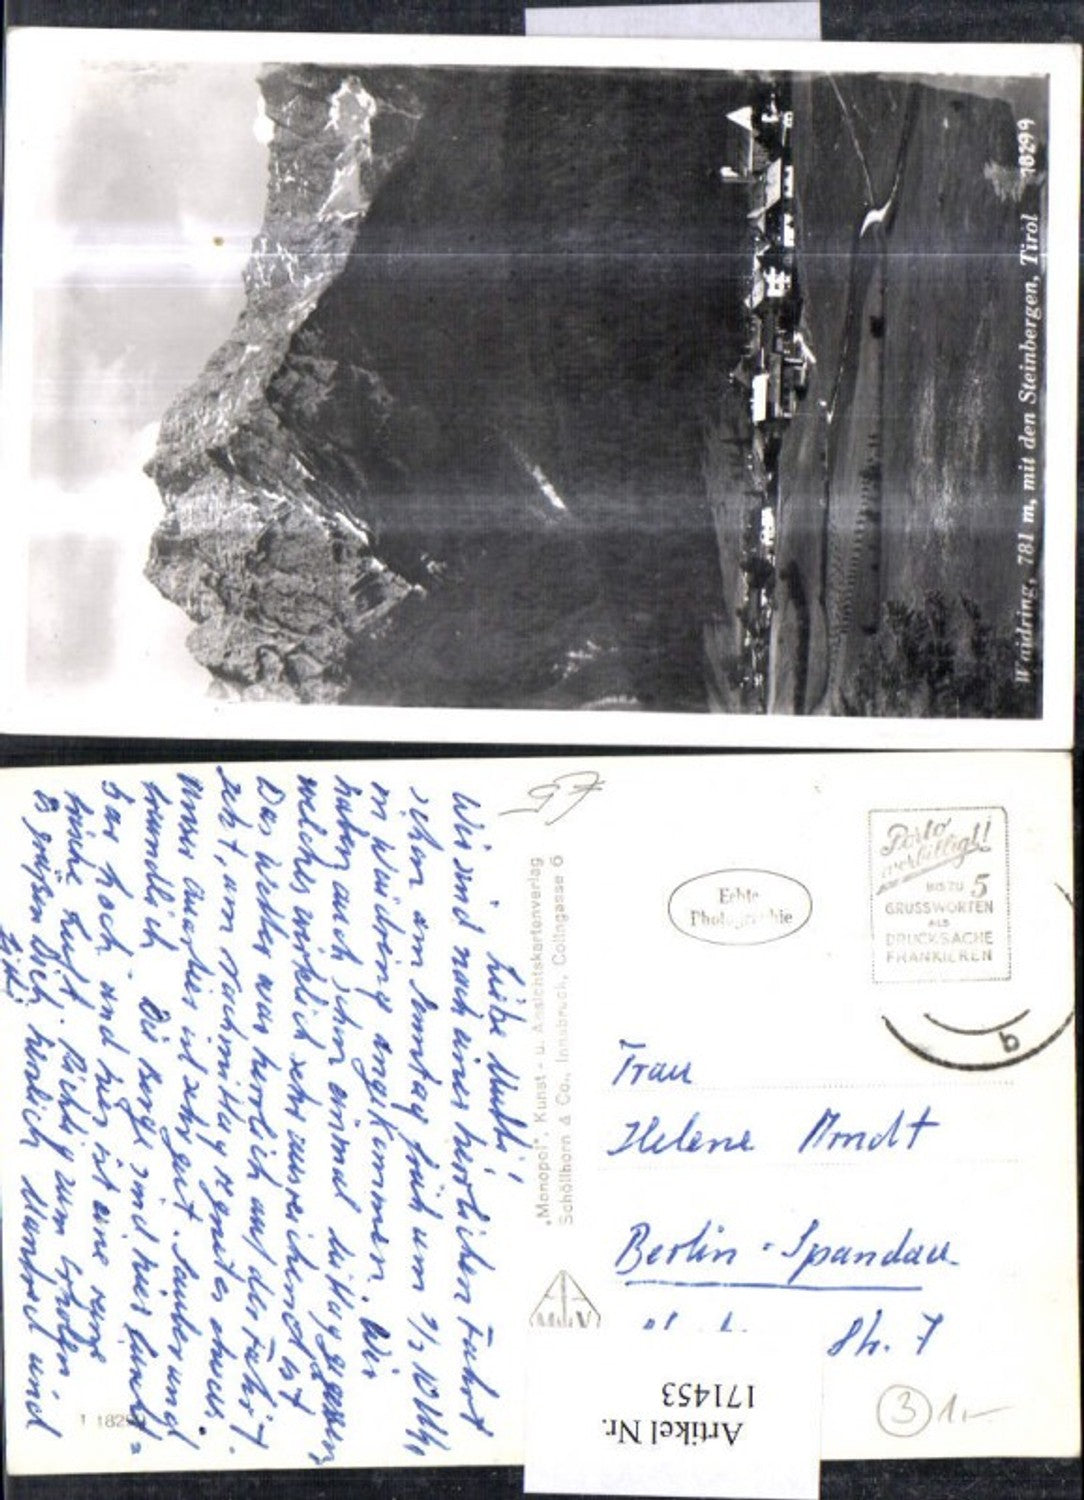 Waidring, 781 m, mit den Steinbergen, Tirol 18299
Liebe Mutti!
Wir sind nach einer herrlichen Fahrt
schon am Sonntag früh um 1/2 10 Uhr
in Waidring angekommen. Wir
haben auch schon einmal Mittag gegessen,
welches wirklich sehr ausreichend ist.
Das Wetter war herrlich auf der Fahrt.
Jetzt, am Nachmittag regnet es etwas.
Unser Quartier ist sehr gut. Sauber und
freundlich. Die Berge sind hier
gar hoch und hier ist eine
frische Luft. Richtig zum erholen.
Es grüßen Dich herzlich Manfred und
"Monopol", Kunst- u. Ansichtskartenverlag
Schöllhorn & Co., Innsbruck, Colingasse 6
Echte
Photographie
Porto
verbilligt!
BIS ZU 5
GRUSSWORTEN
ALS
DRUCKSACHE
FRANKIEREN
b
Frau
Helene Arndt
Berlin-Spandau
Str. 7
M V
1 18299
Artikel Nr.
171453
3 1,-